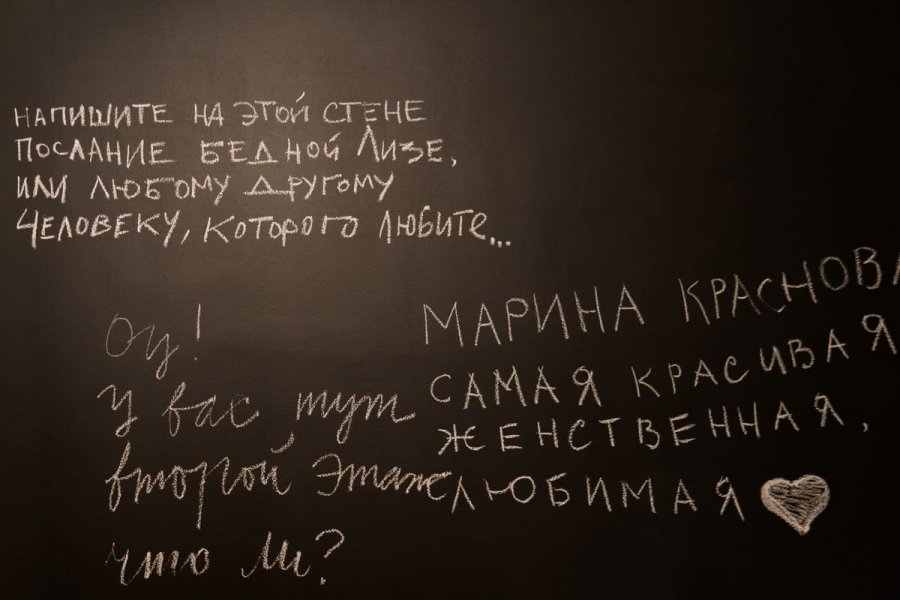 НАПИШИТЕ НА ЭТОЙ СТЕНЕ
ПОСЛАНИЕ БЕДНОЙ ЛИЗЕ,
ИЛИ ЛЮБОМУ ДРУГОМУ
ЧЕЛОВЕКУ, КОТОРОГО ЛЮБИТЕ...
Оу!
У вас тут
второй этаж
что ли?
МАРИНА КРАСНОВА
САМАЯ КРАСИВАЯ
ЖЕНСТВЕННАЯ,
ЛЮБИМАЯ